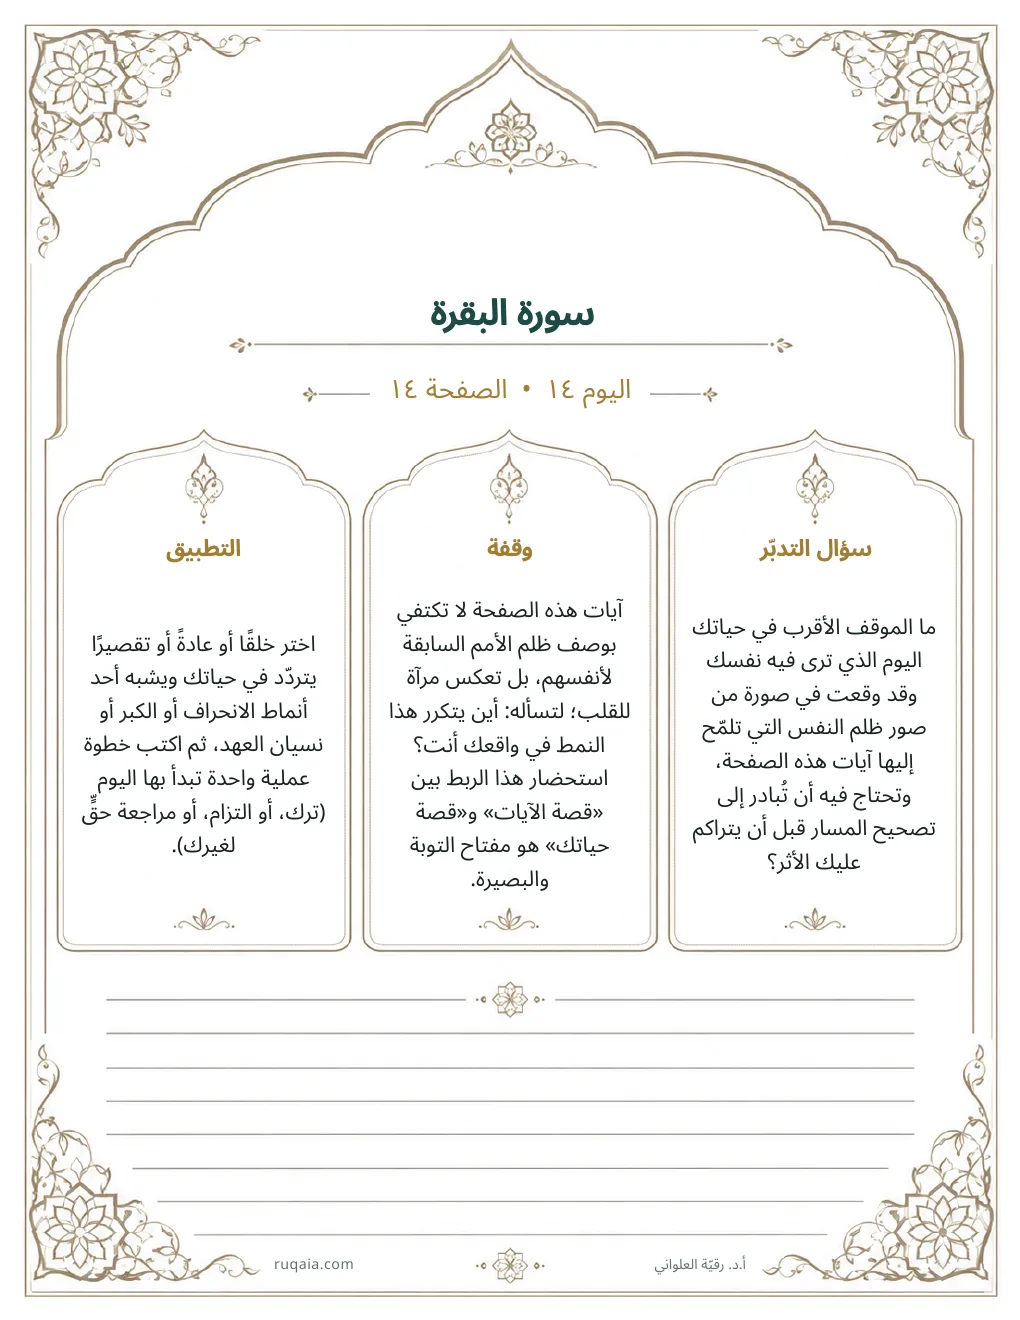 سورة البقرة
اليوم ١٤ • الصفحة ١٤
سؤال التدبّر
ما الموقف الأقرب في حياتك
اليوم الذي ترى فيه نفسك
وقد وقعت في صورة من
صور ظلم النفس التي تلمّح
إليها آيات هذه الصفحة،
وتحتاج فيه أن تُبادر إلى
تصحيح المسار قبل أن يتراكم
عليك الأثر؟
وقفة
آيات هذه الصفحة لا تكتفي
بوصف ظلم الأمم السابقة
لأنفسهم، بل تعكس مرآة
للقلب؛ لتسأله: أين يتكرر هذا
النمط في واقعك أنت؟
استحضار هذا الربط بين
«قصة الآيات» و«قصة
حياتك» هو مفتاح التوبة
والبصيرة.
التطبيق
اختر خلقًا أو عادةً أو تقصيرًا
يتردّد في حياتك ويشبه أحد
أنماط الانحراف أو الكبر أو
نسيان العهد، ثم اكتب خطوة
عملية واحدة تبدأ بها اليوم
(ترك، أو التزام، أو مراجعة حقٍّ
لغيرك).
أ.د. رقيّة العلواني
ruqaia.com